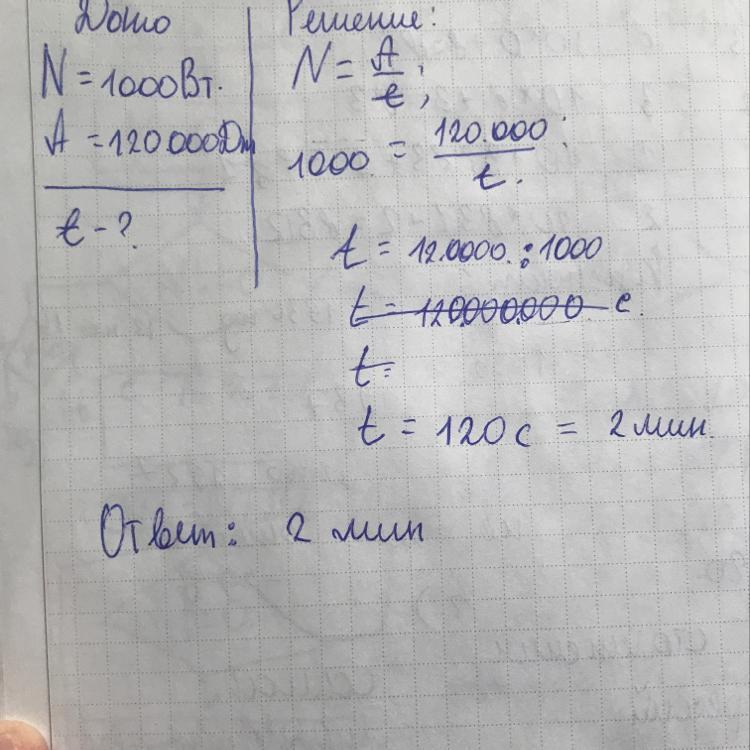 Дано
N = 1000Вт.
A = 120 000Дж
t - ?
Решение:
N = A/t;
1000 = 120.000/t.
t = 120000 : 1000
t = 120000.000 с.
t =
t = 120 с = 2 мин.
Ответ: 2 мин